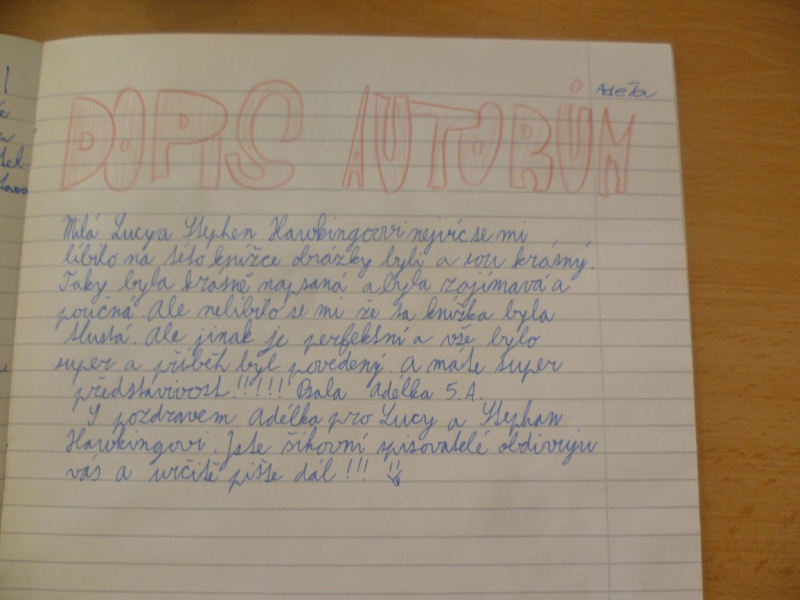 Adéla
DOPIS AUTORŮM
Milá Lucy a Stephen Hawkingovi nejvíc se mi
líbilo na této knížce obrázky byli a sou krásný.
Taky byla krásně napsaná a byla zajímavá a
poučná. Ale nelíbilo se mi že ta knížka byla
tlustá. Ale jinak je perfektní a vše bylo
super a příběh byl povedený. A máte super
představivost!!!!!! Psala Adélka 5.A.
S pozdravem Adélka pro Lucy a Stephan
Hawkingovi. Jste šikovní spisovatelé obdivuju
vás a určitě pište dál!!!